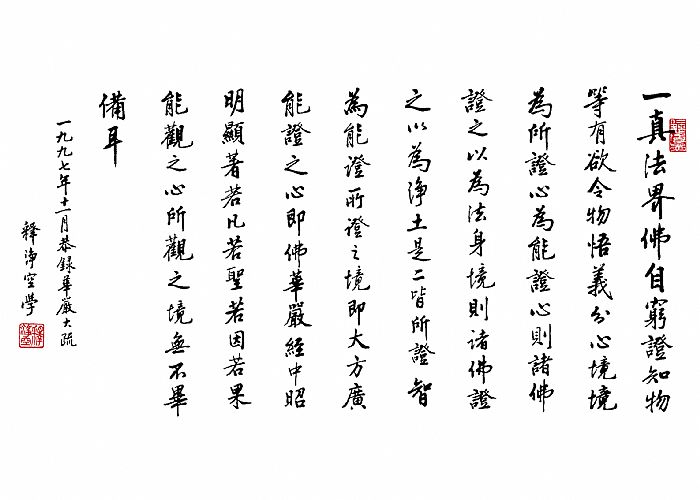 一真法界佛自窮證知物
等有欲令物悟義分心境境
為所證心為能證心則諸佛
證之以為法身境則諸佛證
之以為淨土是二皆所證智
為能證所證之境即大方廣
能證之心即佛華嚴經中昭
明顯著若凡若聖若因若果
能觀之心所觀之境無不畢
備耳
一九九七年十一月恭錄華嚴大疏
釋淨空學